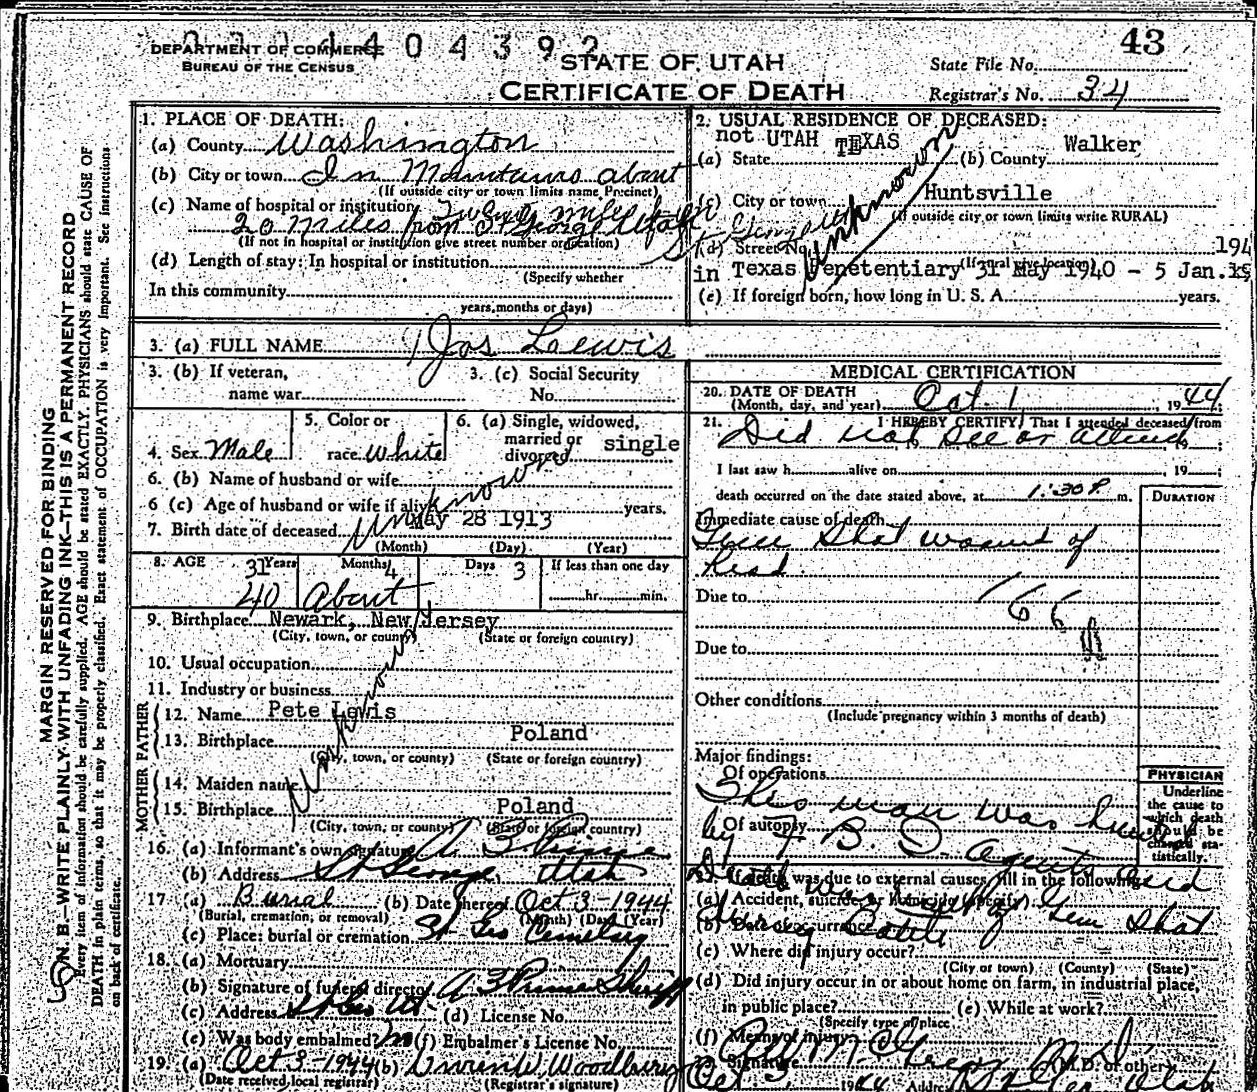 0 2 1 4 4 0 4 3 9 2
DEPARTMENT OF COMMERCE
BUREAU OF THE CENSUS
STATE OF UTAH
CERTIFICATE OF DEATH
43
State File No.
Registrar's No. 34
MARGIN RESERVED FOR BINDING
N. B.—WRITE PLAINLY WITH UNFADING INK—THIS IS A PERMANENT RECORD
Every item of information should be carefully supplied. AGE should be stated EXACTLY. PHYSICIANS should state CAUSE OF
DEATH in plain terms, so that it may be properly classified. Exact statement of OCCUPATION is very important. See instructions
on back of certificate.
1. PLACE OF DEATH:
(a) County Washington
(b) City or town In Mountains about
(If outside city or town limits name Precinct)
(c) Name of hospital or institution
20 miles from St George Utah
(If not in hospital or institution give street number or location)
(d) Length of stay: In hospital or institution
(Specify whether
In this community
years, months or days)
2. USUAL RESIDENCE OF DECEASED:
not UTAH TEXAS
(a) State (b) County Walker
(c) City or town Huntsville
(If outside city or town limits write RURAL)
unknown
(d) Street No. 194
(If rural give location)
in Texas Penetentiary 31 May 1940 - 5 Jan.
(e) If foreign born, how long in U. S. A. years.
3. (a) FULL NAME Jos Leewis
3. (b) If veteran, name war
3. (c) Social Security No.
4. Sex Male
5. Color or race White
6. (a) Single, widowed, married or divorced single
6. (b) Name of husband or wife
6 (c) Age of husband or wife if alive years.
unknown
7. Birth date of deceased May 28 1913
(Month) (Day) (Year)
8. AGE 31 Years Months 4 Days 3 If less than one day
40 About hr. min.
9. Birthplace Newark, New Jersey
(City, town, or county) (State or foreign country)
10. Usual occupation
11. Industry or business
FATHER
12. Name Pete Lewis
13. Birthplace Poland
(City, town, or county) (State or foreign country)
Unknown
MOTHER
14. Maiden name
15. Birthplace Poland
(City, town, or county) (State or foreign country)
16. (a) Informant's own signature
(b) Address St George, Utah
17 (a) Burial (b) Date thereof Oct 3-1944
(Burial, cremation, or removal) (Month) (Day) (Year)
(c) Place: burial or cremation St Geo Cemetery
18. (a) Mortuary
(b) Signature of funeral director Sheriff
(c) Address St Geo Ut. (d) License No.
(e) Was body embalmed? no (f) Embalmer's License No.
19. (a) Oct 3-1944 (b) Woodbury
(Date received local registrar) (Registrar's signature)
MEDICAL CERTIFICATION
20. DATE OF DEATH
(Month, day, and year) Oct. 1, 1944
21. I HEREBY CERTIFY, That I attended deceased from
Did not see or attend, 19
I last saw h alive on , 19
death occurred on the date stated above, at 1:30 P. m.
DURATION
Immediate cause of death
Gun shot wound of
head
Due to
166
Due to
Other conditions
(Include pregnancy within 3 months of death)
Major findings:
Of operations
This man was
by F. B. I. agents and
Of autopsy
PHYSICIAN
Underline the cause to which death should be charged statistically.
22. If death was due to external causes, fill in the following:
Death was by Gun Shot
(a) Accident, suicide, or homicide (specify)
during Battle
(b) Date of occurrence
(c) Where did injury occur?
(City or town) (County) (State)
(d) Did injury occur in or about home on farm, in industrial place,
in public place? (e) While at work?
(Specify type of place
(f) Means of injury
Signature M. D. or other
Oct 3 1944 Address